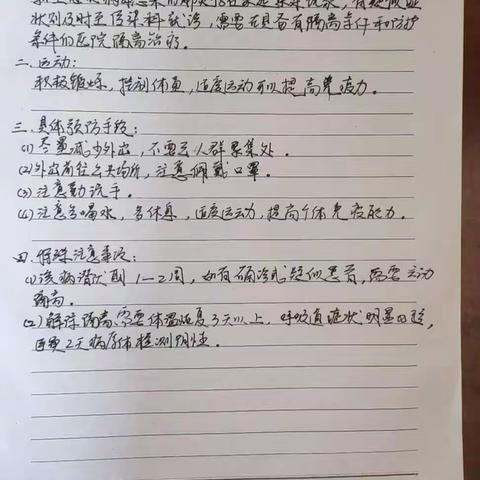 状则及时至传染科就诊，需要在具备有隔离条件和防护
条件的医院隔离治疗。
二、运动：
积极锻炼，控制体重，适度运动可以提高免疫力。
三、具体预防手段：
(1)尽量减少外出，不要去人群聚集处。
(2)外出前往公共场所，注意佩戴口罩。
(3)注意勤洗手。
(4)注意多喝水，多休息，适度运动，提高个体免疫能力。
四、特殊注意事项：
(1)该病潜伏期1—2周，如有确诊或疑似患者，需要主动
隔离。
(2)解除隔离需要体温恢复3天以上，呼吸道症状明显好转，
连续2天病原体检测阴性。